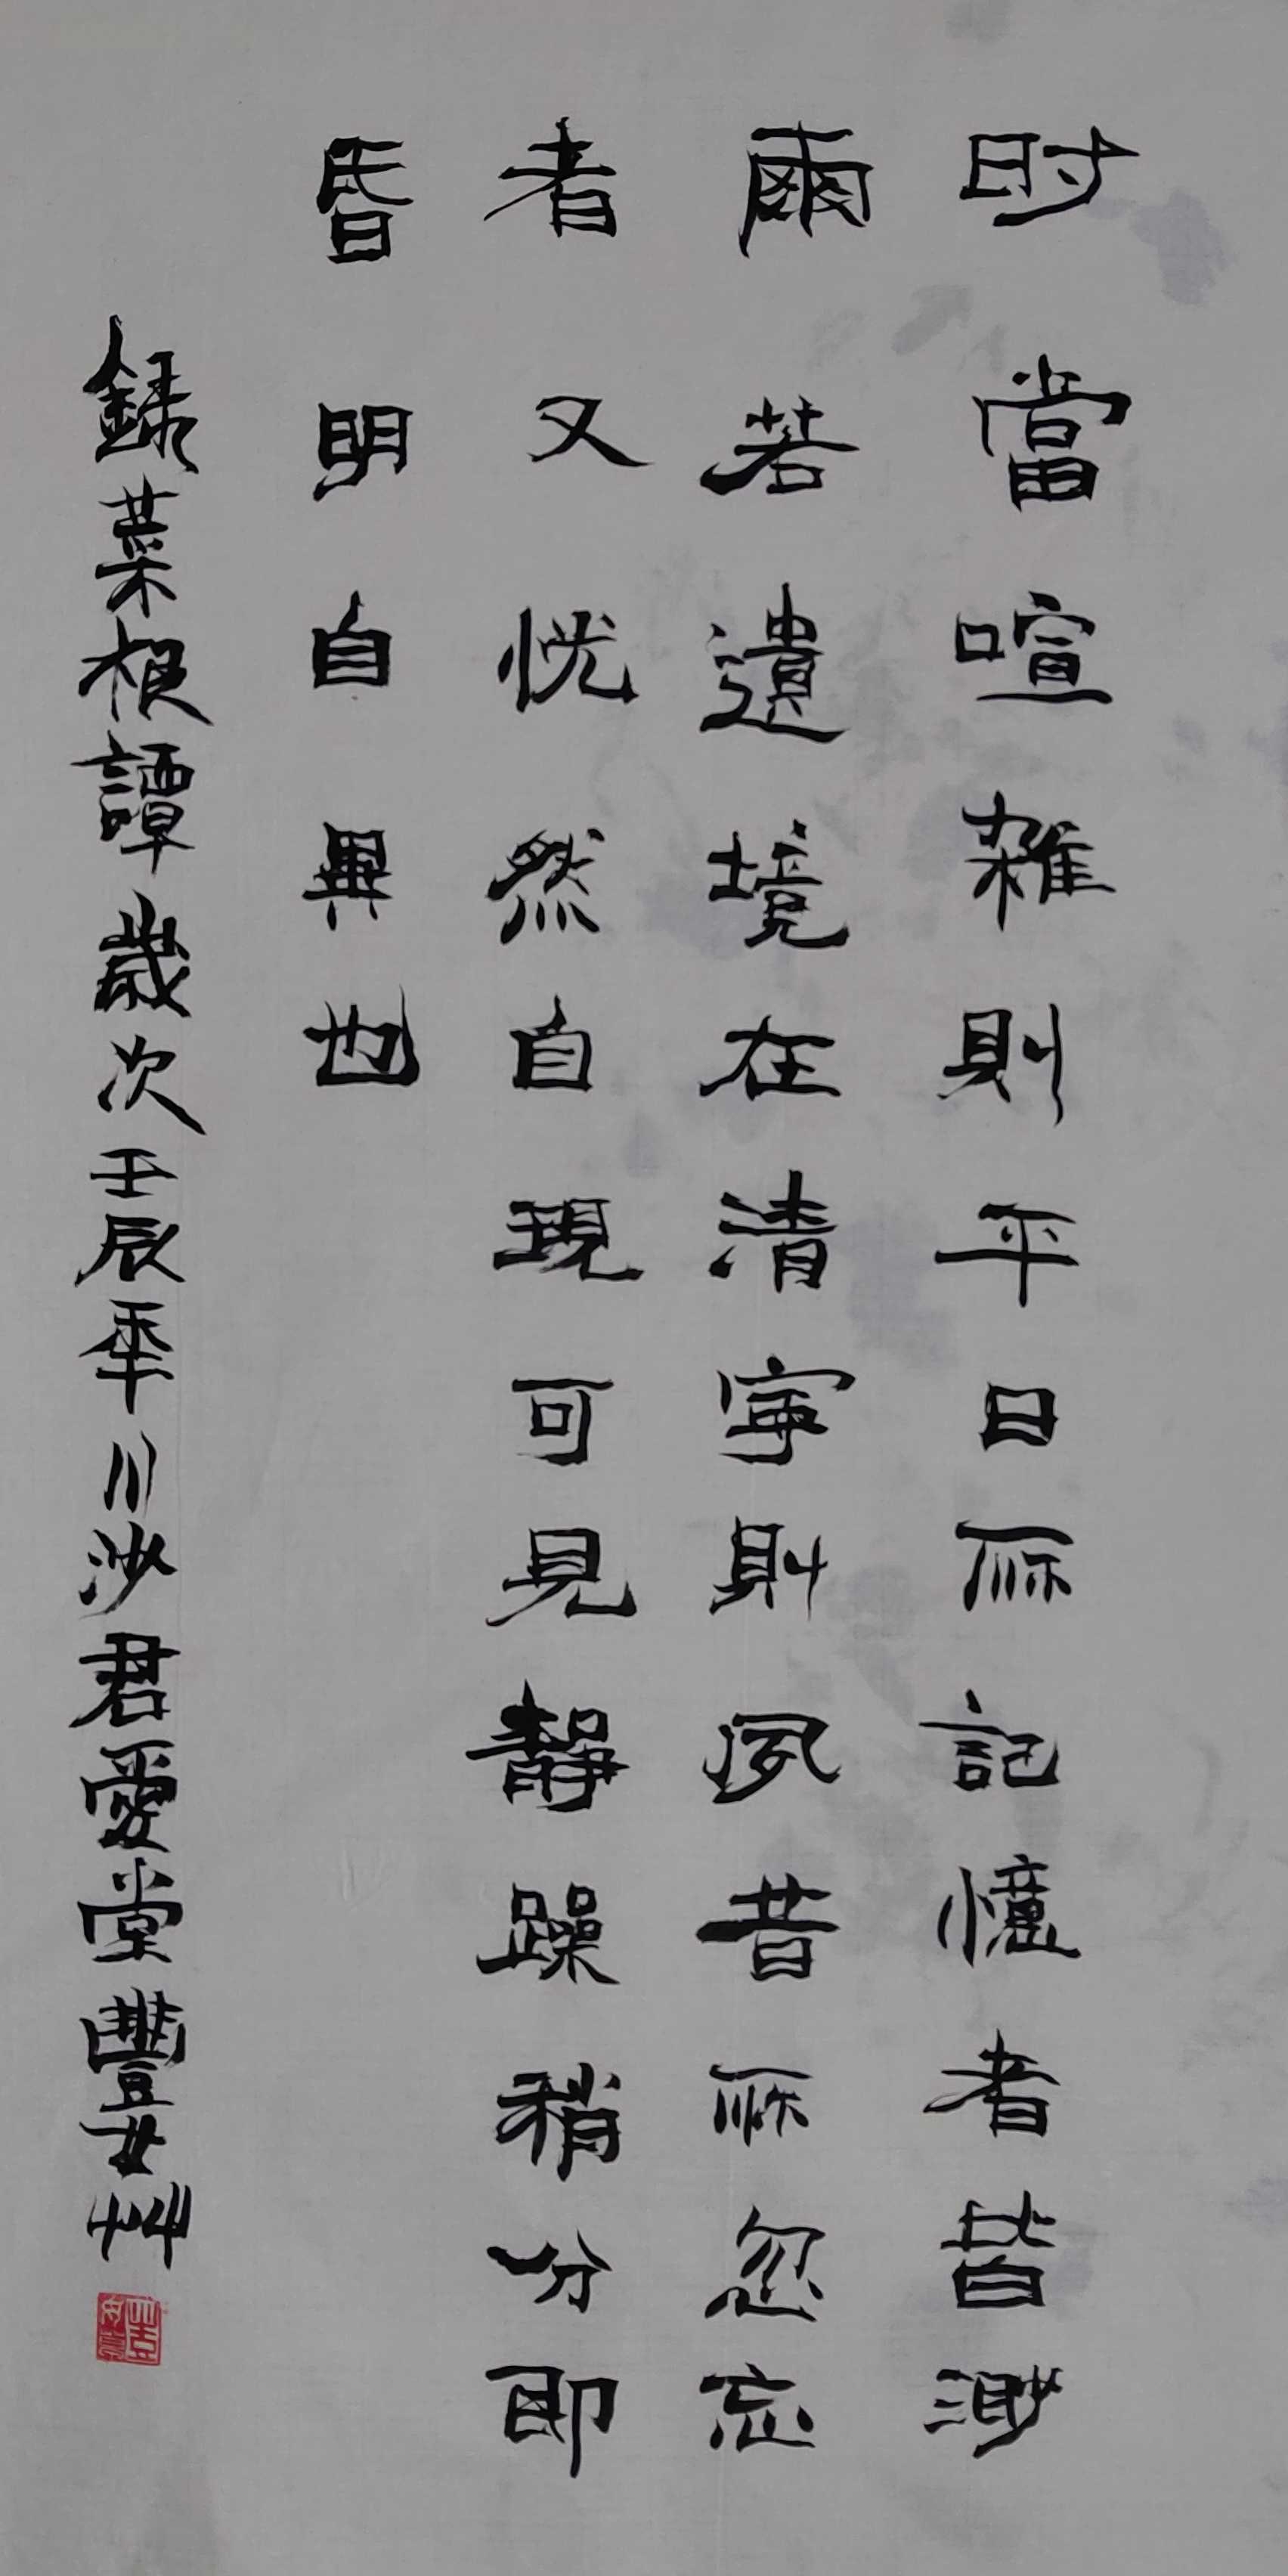 时當喧雜則平日所記憶者皆渺
爾若遺境在清寧則夙昔所忽忘
者又恍然自現可見靜躁稍分即
昏明自異也
録菜根譚歲次壬辰年川沙君愛堂豐女艸